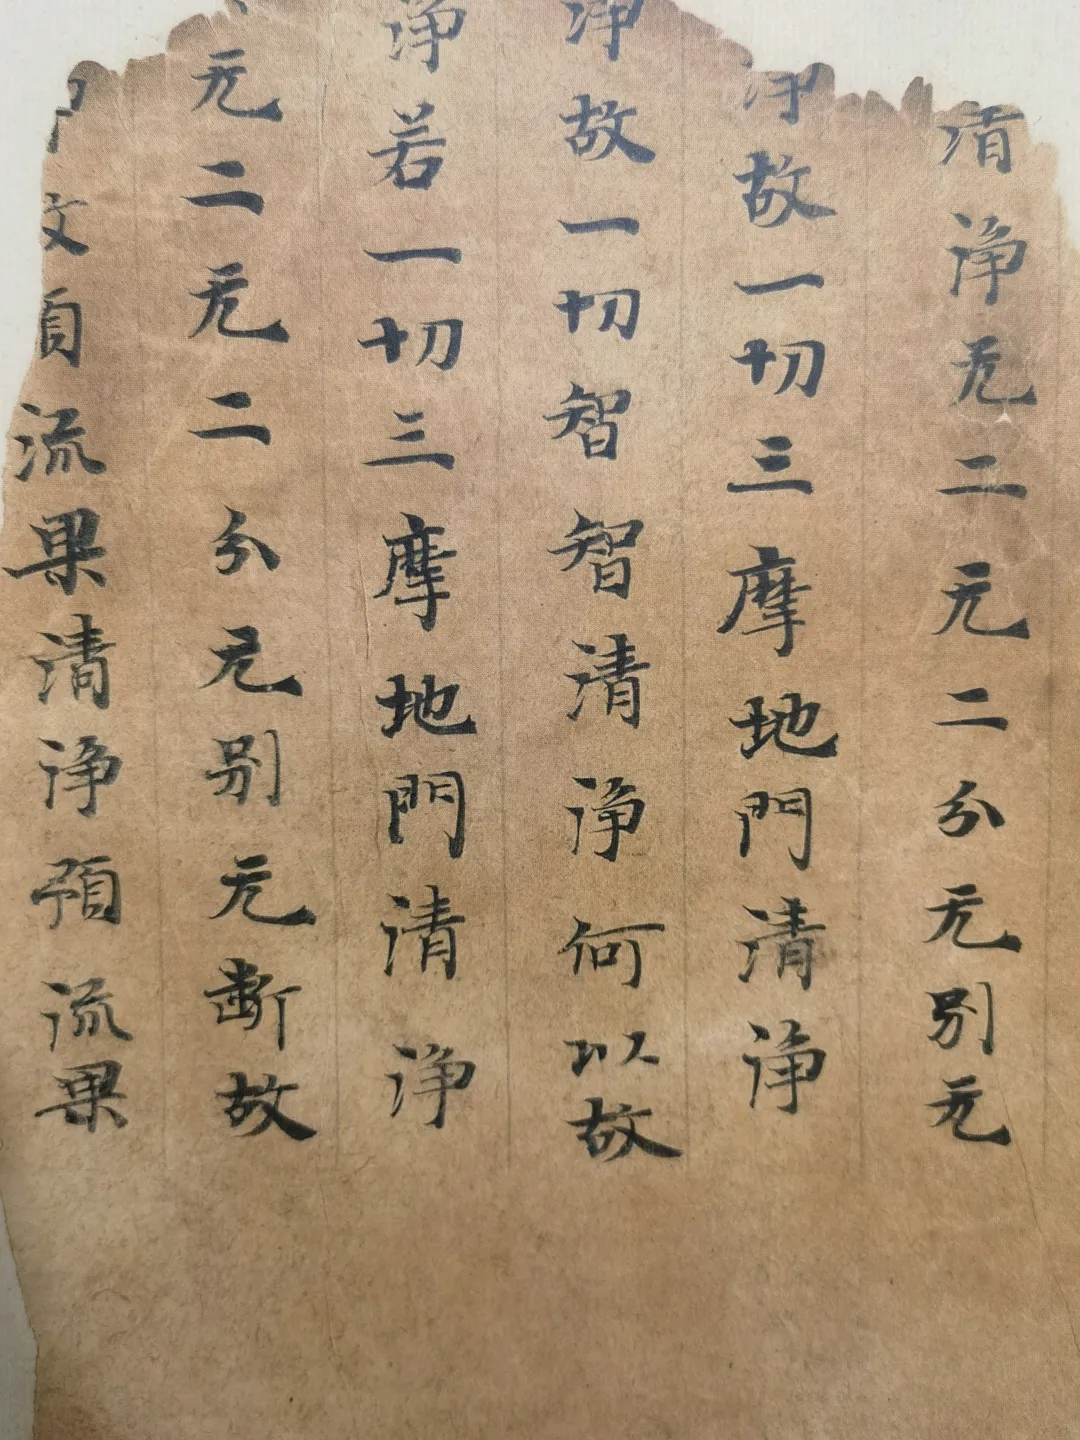 清淨无二无二分无别无
淨故一切三摩地門清淨
淨故一切智智清淨何以故
淨若一切三摩地門清淨
无二无二分无别无断故
淨故預流果清淨預流果